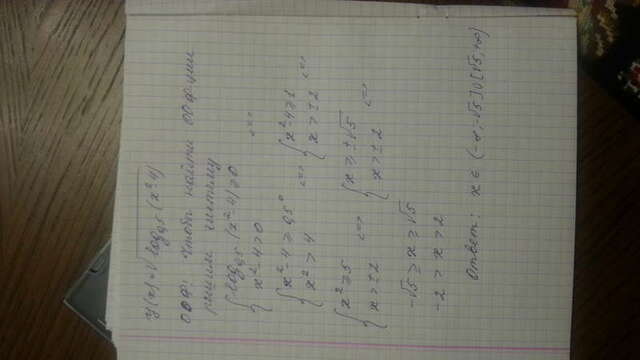 y(x)=√log₀,₅(x²-4)
ООФ: Чтобы найти ООФ-ции
решим систему
{log₀,₅(x²-4)≥0
{x²-4>0 <=>
{x²-4≥0,5⁰ <=> {x²-4≥1 <=>
{x²>4 {x>±2
{x²≥5 <=> {x≥±√5 <=>
{x>±2 {x>±2
-√5≥x≥√5
-2>x>2
Ответ: x∈(-∞;-√5]∪[√5;+∞)